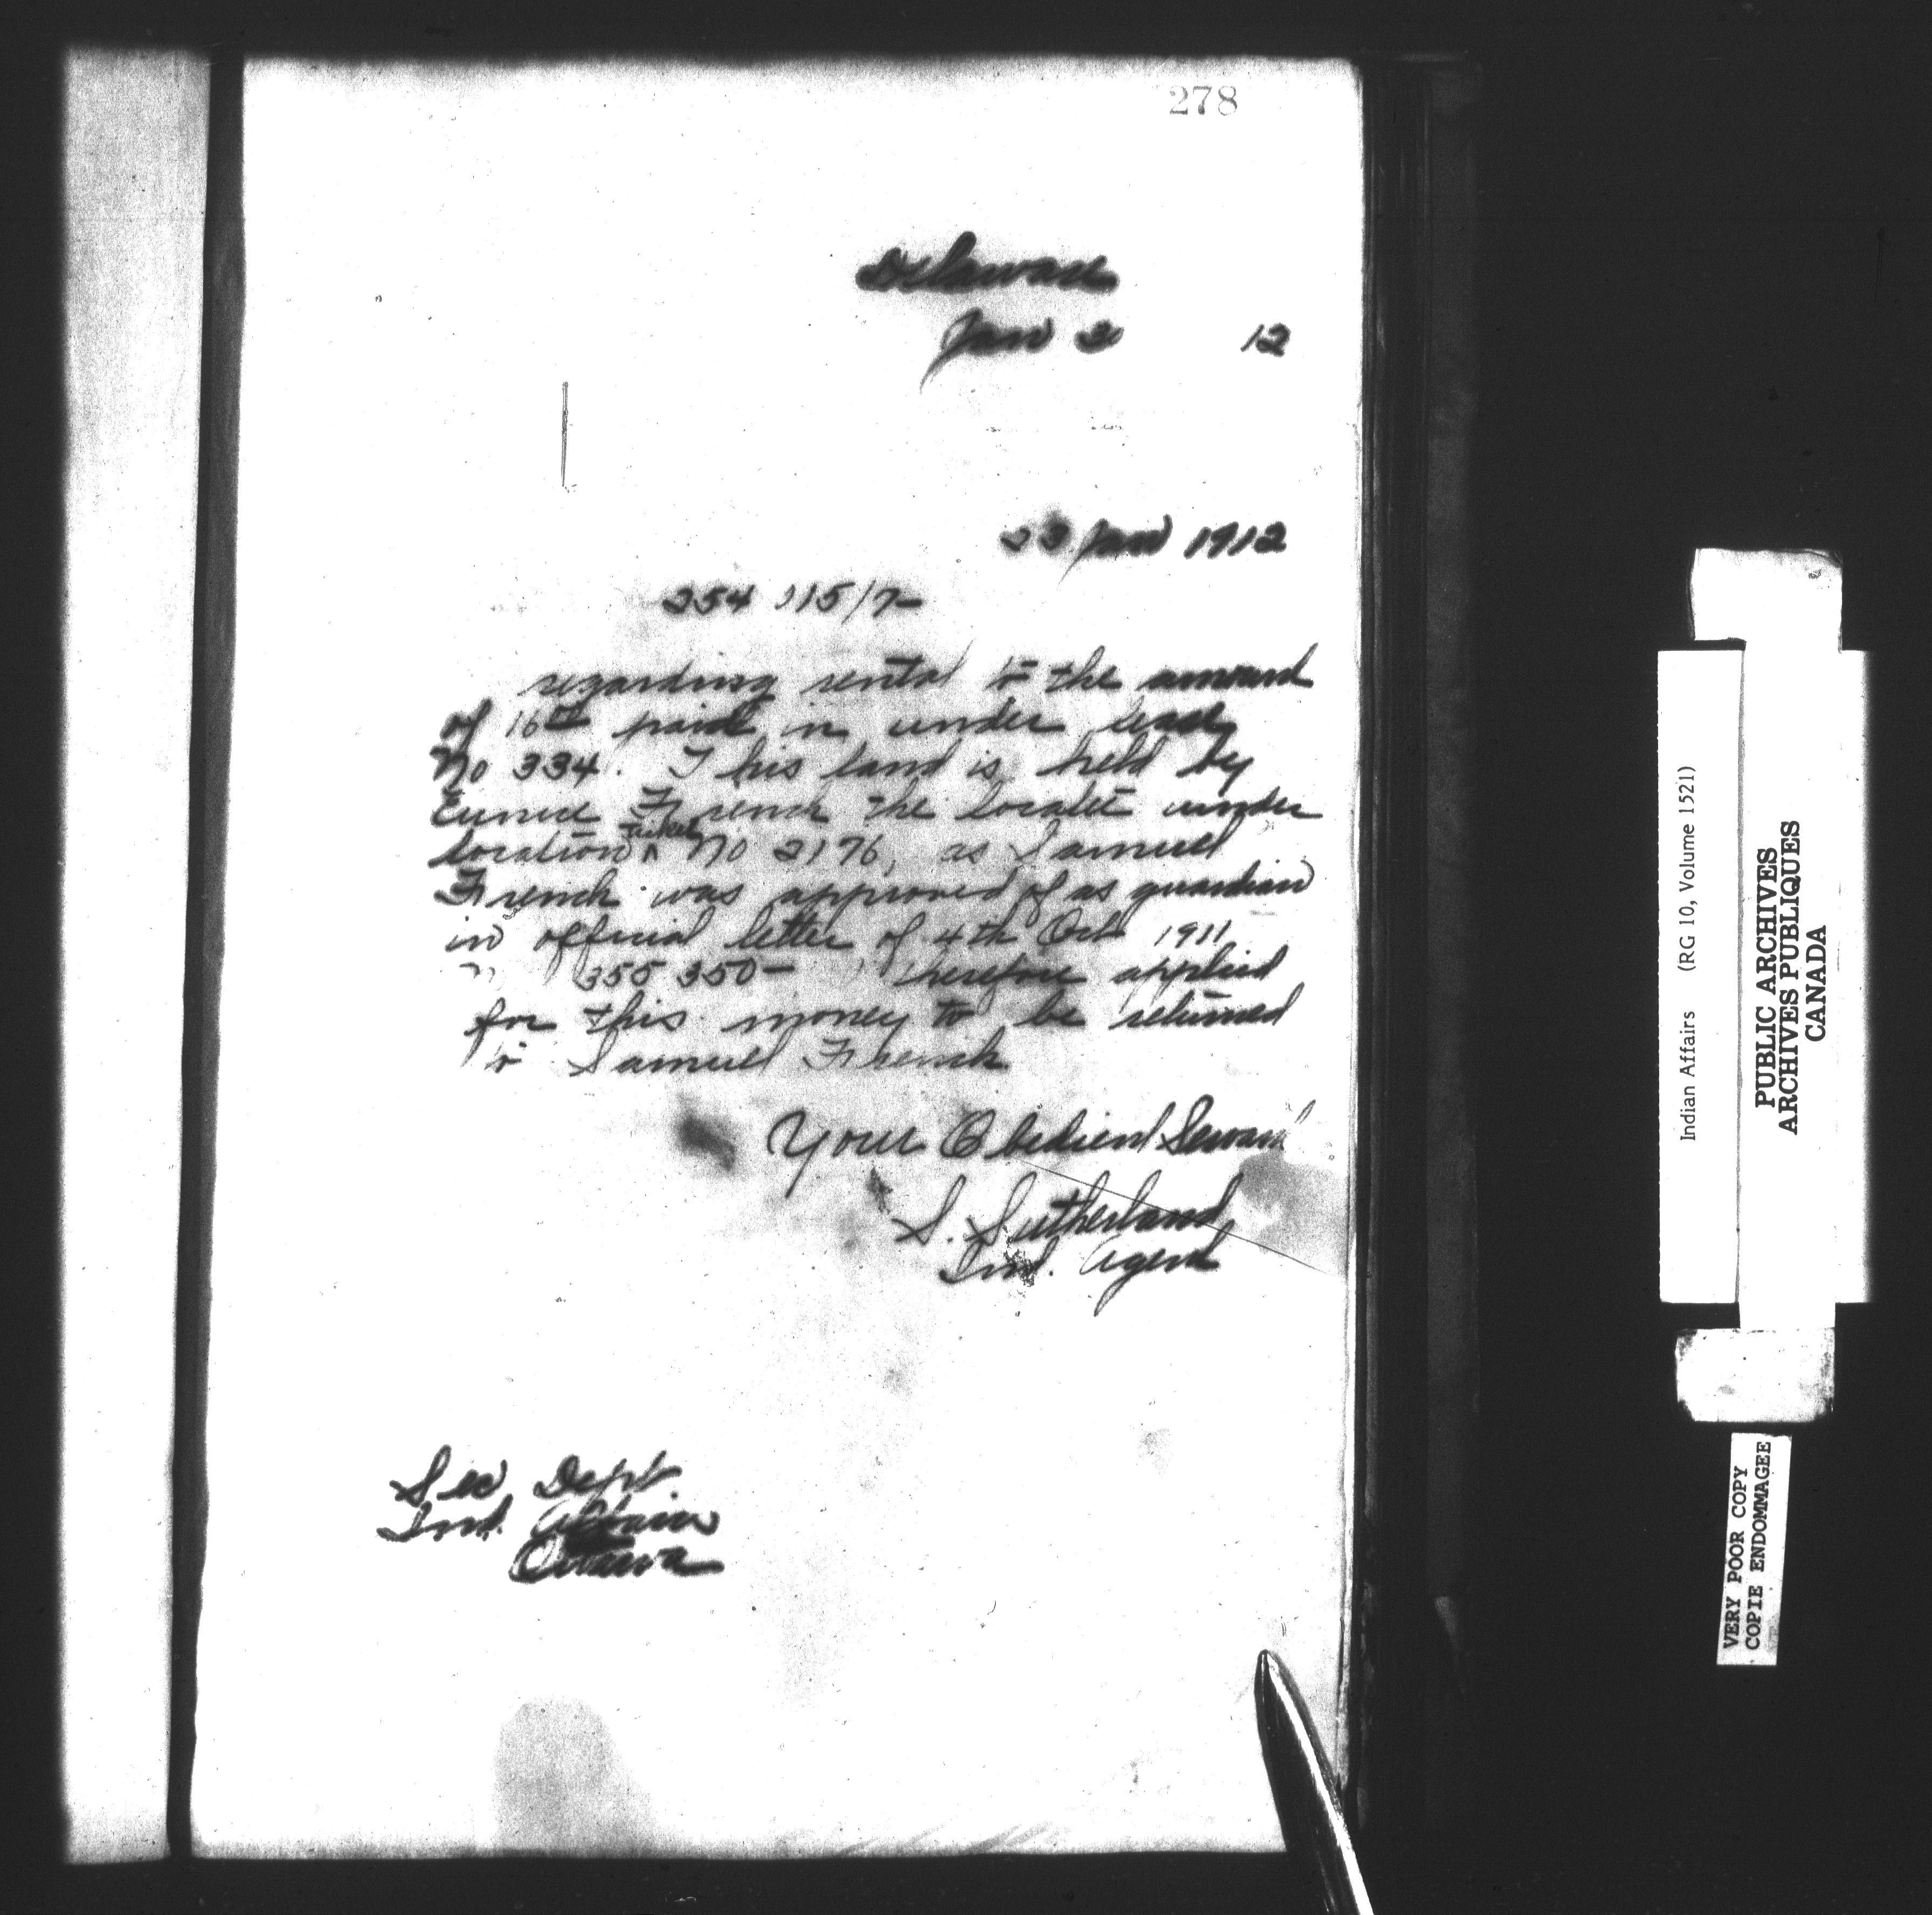 278
Delaware
Jan 12
23 Jan 1912
254 115/7-
regarding rental to the amount
of 16 paid in under lease
No 334. This land is held by
Eunice French the locatee under
location ticket No 2176, as Samuel
French was approved of as guardian
in official letter of 4th Oct 1911
355 350- therefore applied
for this money to be returned
to Samuel French
Your Obedient Servant
S. Sutherland
Ind. Agent
Sec Dept
Ind. Affairs
Ottawa
Indian Affairs (RG 10, Volume 1521)
PUBLIC ARCHIVES
ARCHIVES PUBLIQUES
CANADA
VERY POOR COPY
COPIE ENDOMMAGEE